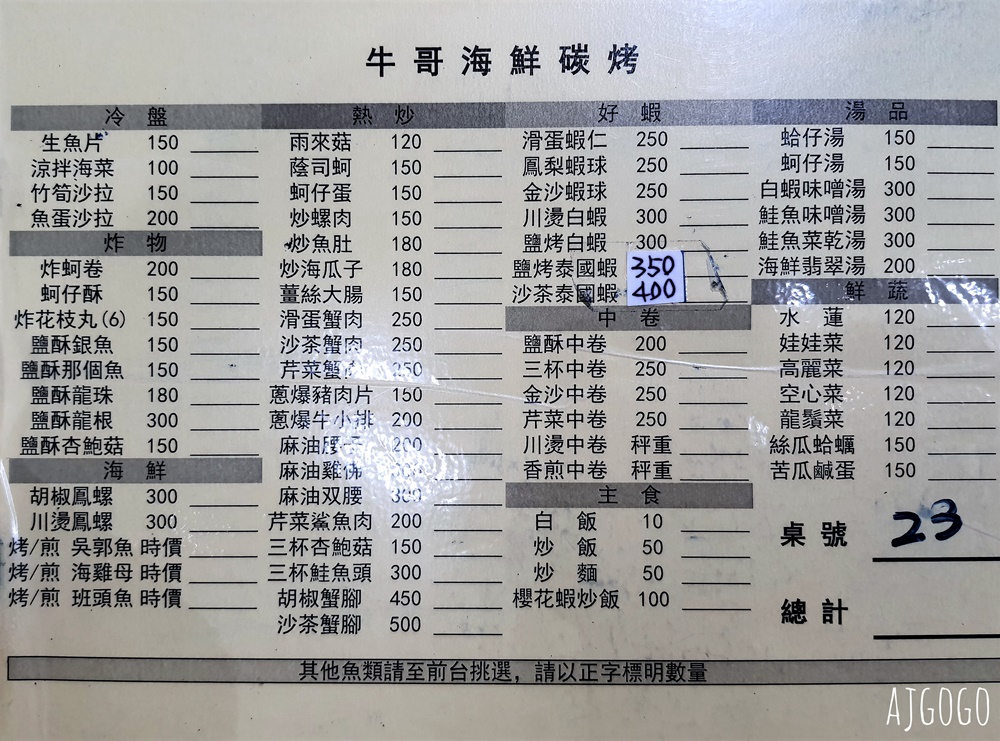 牛哥海鮮碳烤
冷盤
生魚片 150
涼拌海菜 100
竹筍沙拉 150
魚蛋沙拉 200
炸物
炸蚵卷 200
蚵仔酥 150
炸花枝丸(6) 150
鹽酥銀魚 150
鹽酥那個魚 150
鹽酥龍珠 180
鹽酥龍根 300
鹽酥杏鮑菇 150
海鮮
胡椒鳳螺 300
川燙鳳螺 300
烤/煎 吳郭魚 時價
烤/煎 海雞母 時價
烤/煎 班頭魚 時價
熱炒
雨來菇 120
蔭司蚵 150
蚵仔蛋 150
炒螺肉 150
炒魚肚 180
炒海瓜子 180
薑絲大腸 150
滑蛋蟹肉 250
沙茶蟹肉 250
芹菜蟹 250
蔥爆豬肉片 150
蔥爆牛小排 200
麻油腰子 200
麻油雞佛
麻油双腰 300
芹菜鯊魚肉 200
三杯杏鮑菇 150
三杯鮭魚頭 300
胡椒蟹腳 450
沙茶蟹腳 500
好蝦
滑蛋蝦仁 250
鳳梨蝦球 250
金沙蝦球 250
川燙白蝦 300
鹽烤白蝦 300
鹽烤泰國蝦 350
沙茶泰國蝦 400
中卷
鹽酥中卷 200
三杯中卷 250
金沙中卷 250
芹菜中卷 250
川燙中卷 秤重
香煎中卷 秤重
主食
白飯 10
炒飯 50
炒麵 50
櫻花蝦炒飯 100
湯品
蛤仔湯 150
蚵仔湯 150
白蝦味噌湯 300
鮭魚味噌湯 300
鮭魚菜乾湯 300
海鮮翡翠湯 200
鮮蔬
水蓮 120
娃娃菜 120
高麗菜 120
空心菜 120
龍鬚菜 120
絲瓜蛤蠣 150
苦瓜鹹蛋 150
桌號 23
總計
其他魚類請至前台挑選，請以正字標明數量
AJGOGO